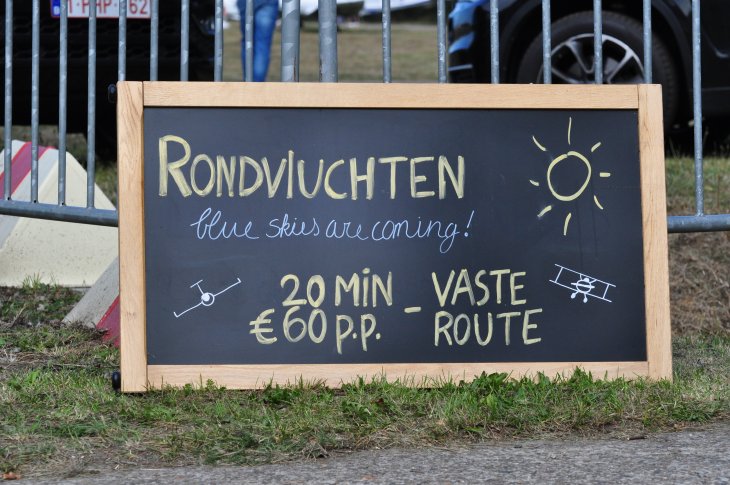 1-PHP-62
RONDVLUCHTEN
blue skies are coming!
20 MIN - VASTE
€60 P.P. ROUTE